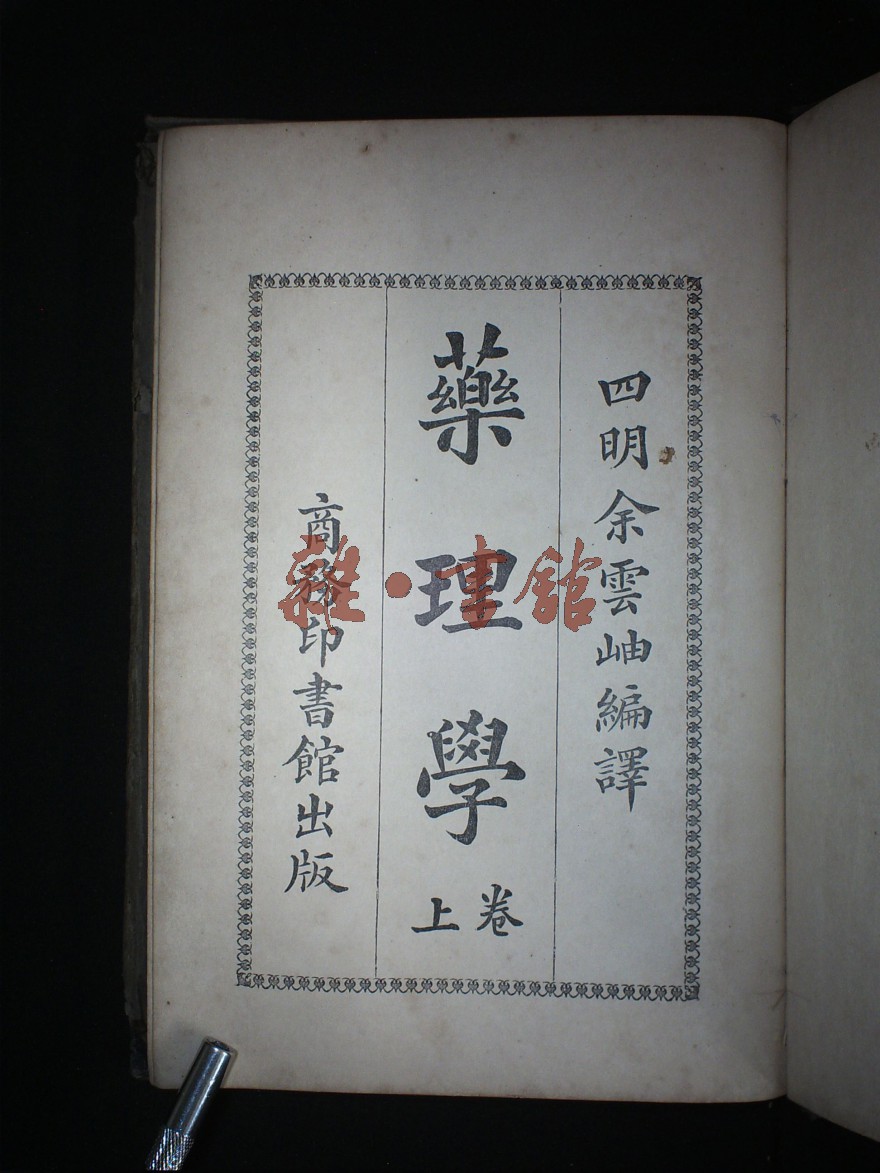 四明余雲岫編譯
藥理學
卷上
商務印書館出版
雜·書館